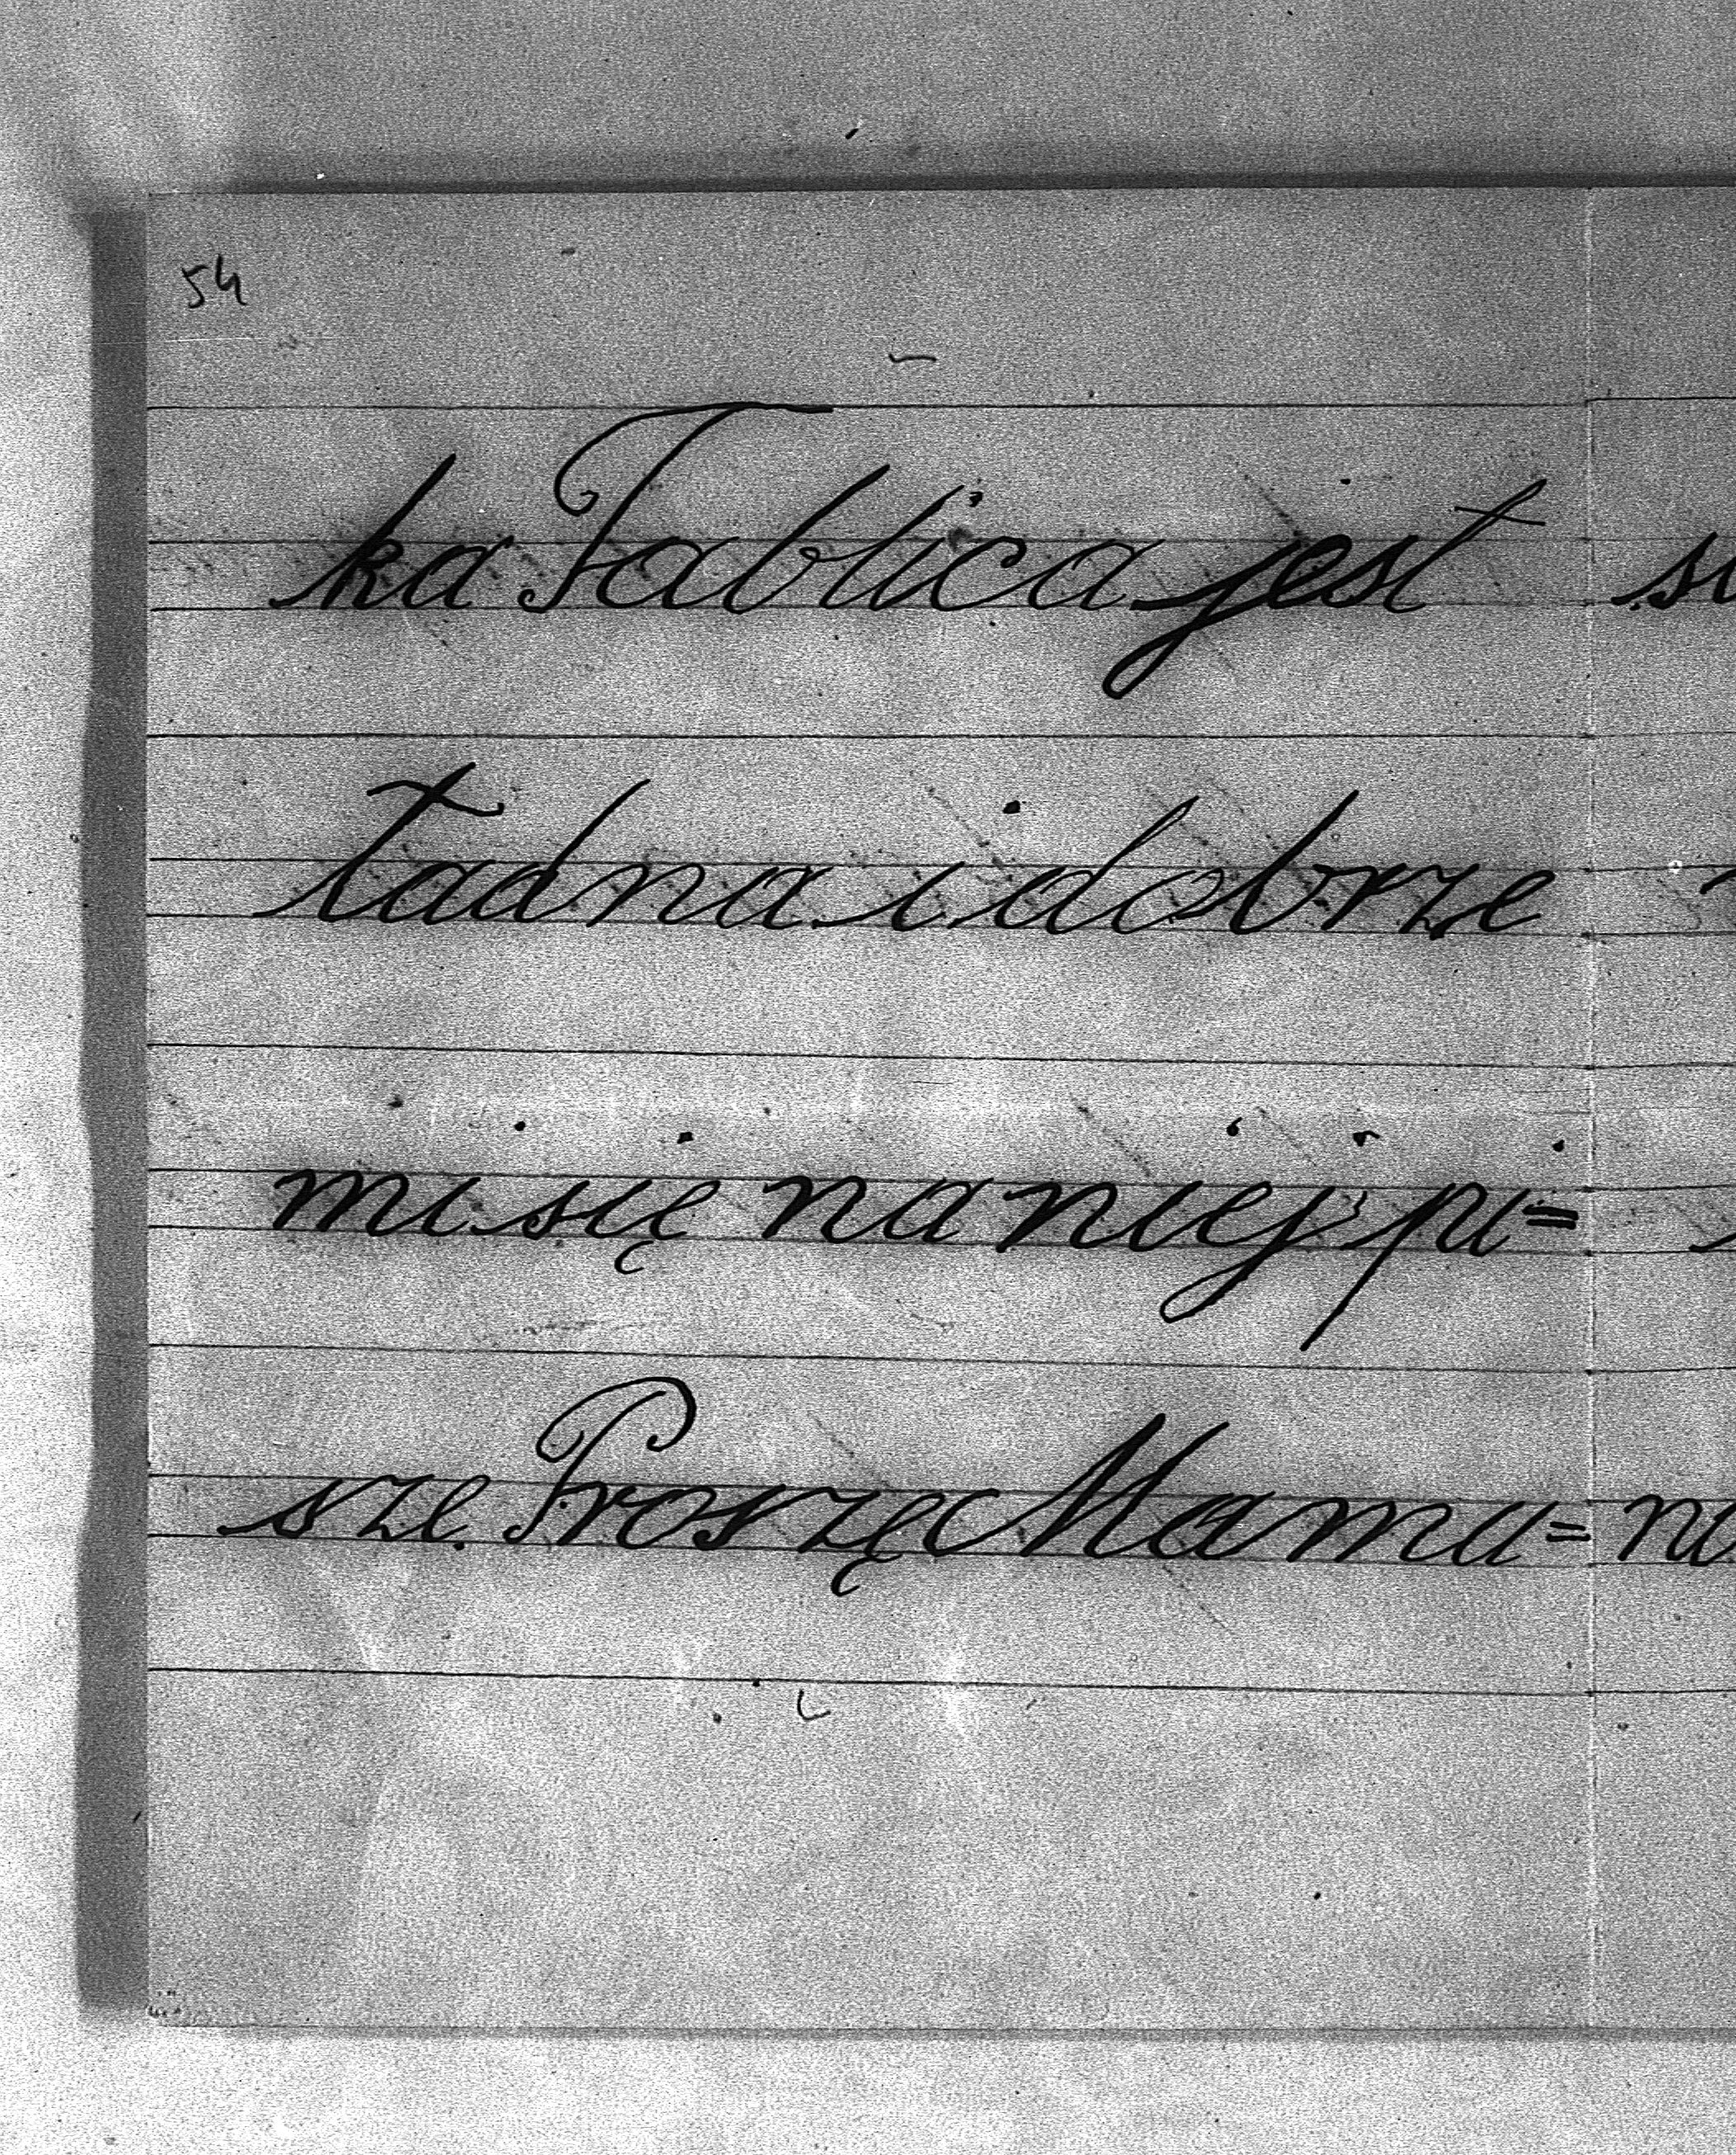 54
ka Tablica jest
ładna i dobrze
mi się na niej pi=
sze. Proszę Mamu=